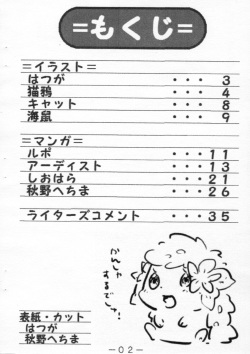 =もくじ=
=イラスト=
はつが ・・・ 3
猫鵺 ・・・ 4
キャット ・・・ 8
海鼠 ・・・ 9
=マンガ=
ルポ ・・・11
アーディスト ・・・13
しおはら ・・・21
秋野へちま ・・・26
ライターズコメント ・・・35
かんしゃ
するでしっ!
表紙・カット
はつが
秋野へちま
－02－